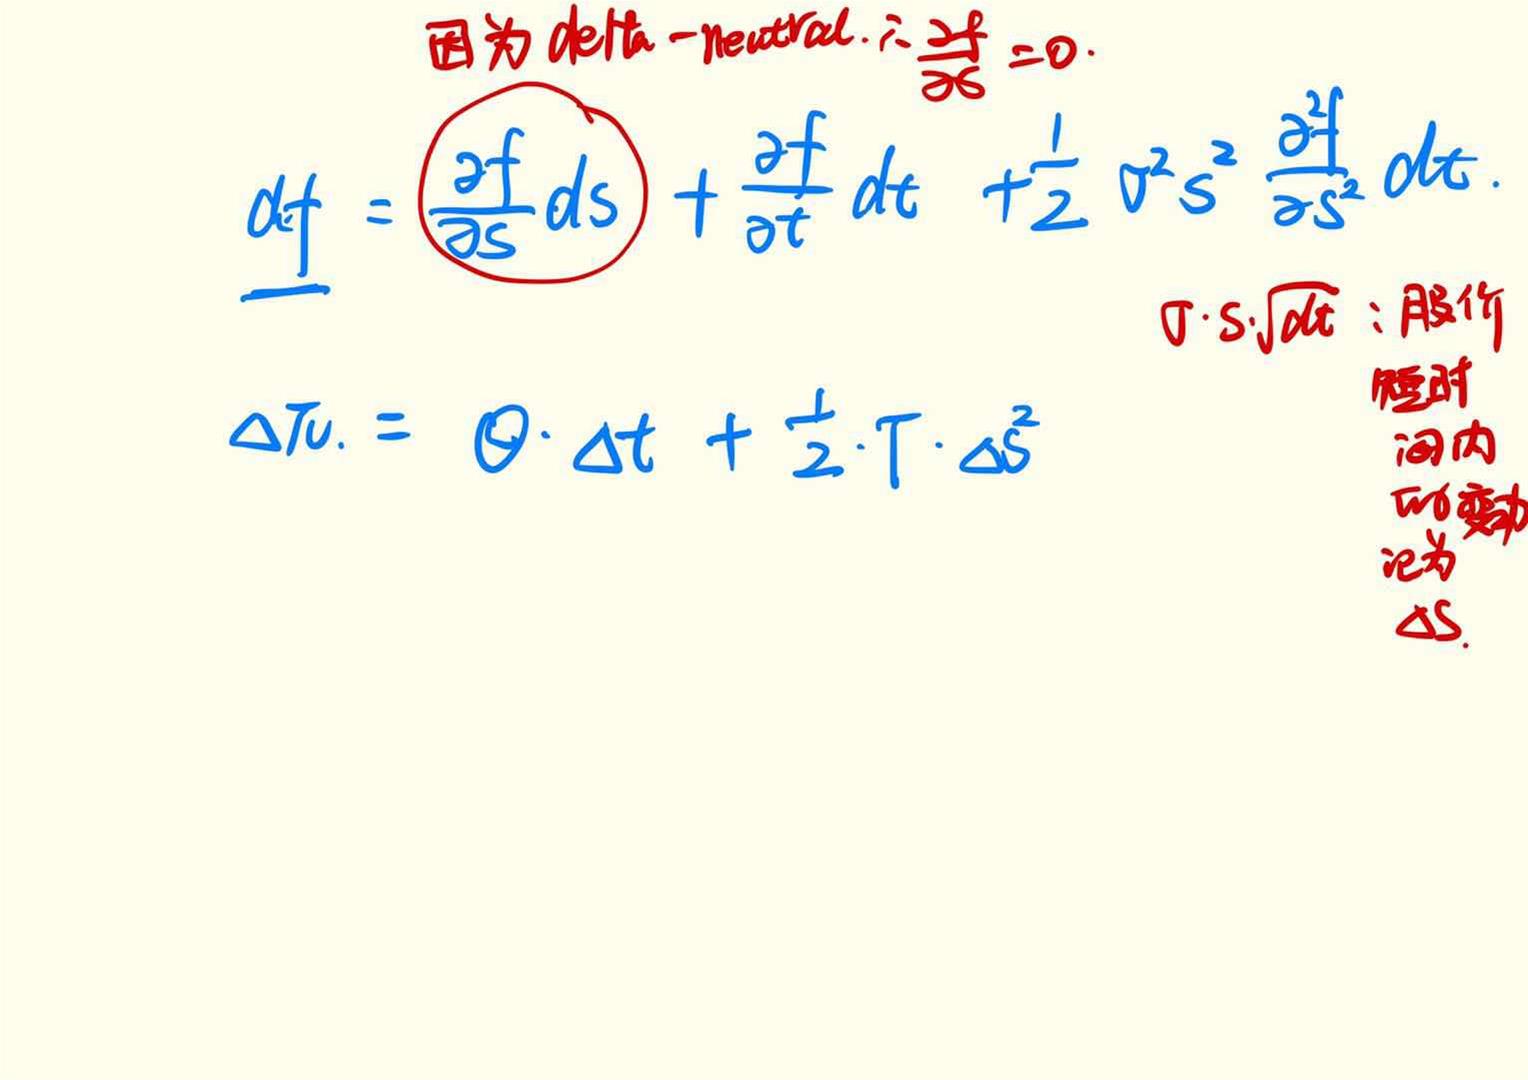 因为 delta-neutral. ∴ ∂f/∂S = 0.
df = ∂f/∂S dS + ∂f/∂t dt + 1/2 σ² S² ∂²f/∂S² dt.
σ·S·√dt : 股价
短时
间内
变动
记为
ΔS.
ΔTV. = Θ·Δt + 1/2·Γ·ΔS²